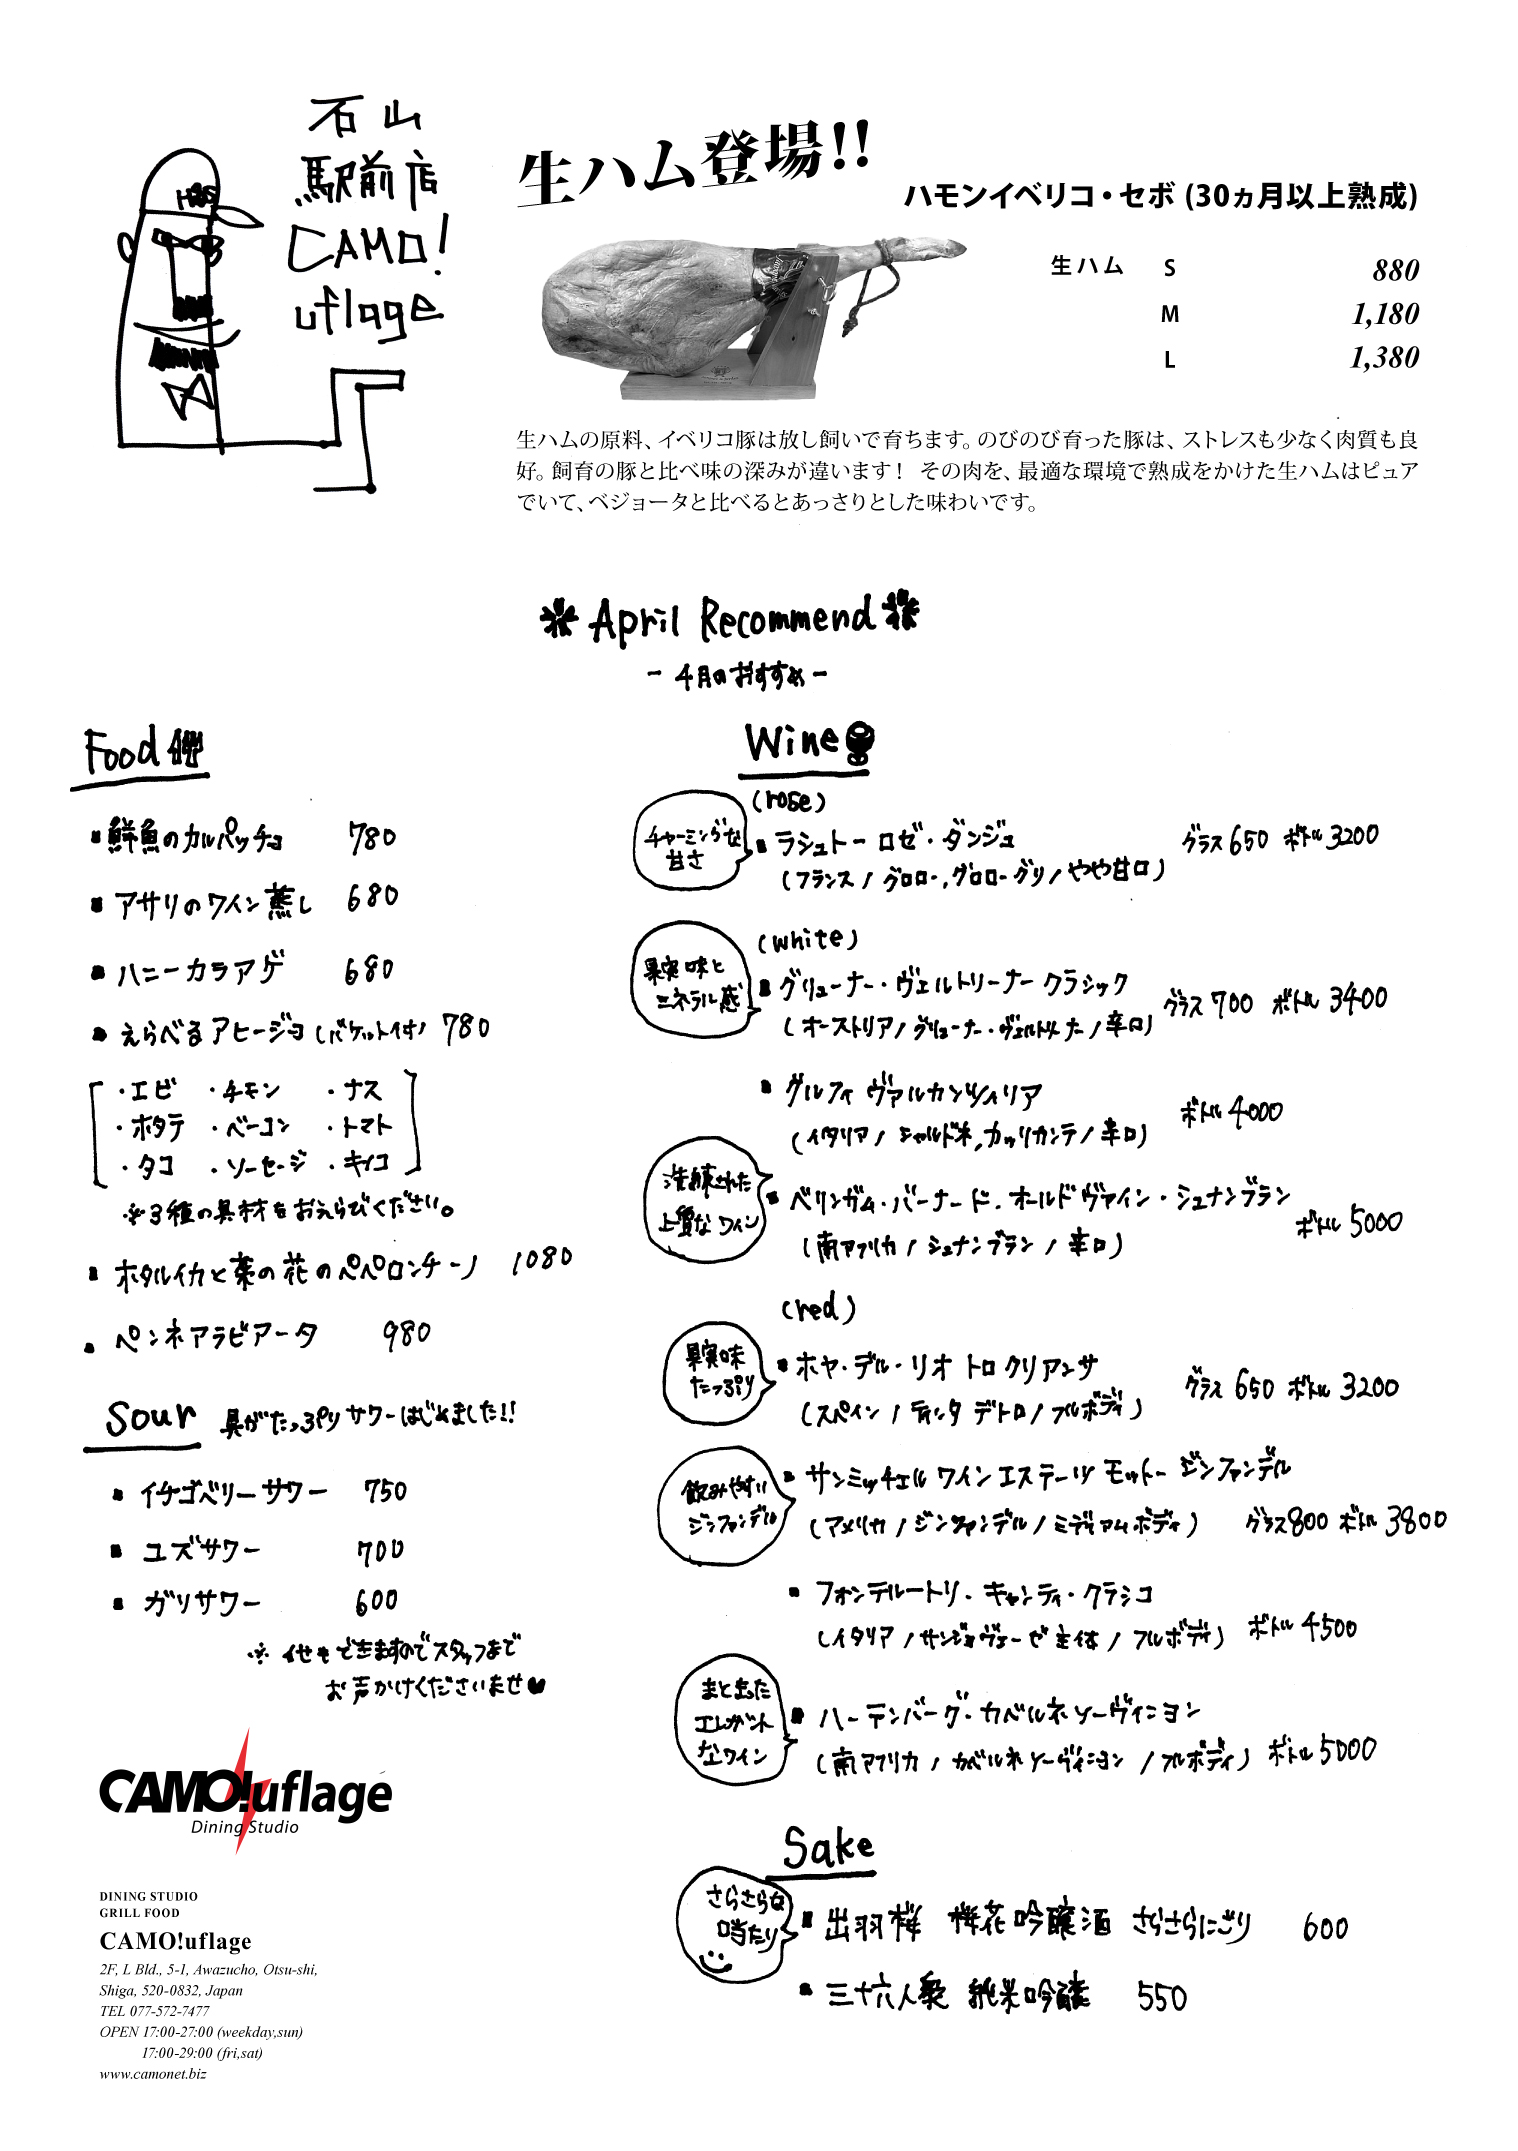 石山
駅前店
CAMO!
uflage
生ハム登場!!
ハモンイベリコ・セボ (30ヵ月以上熟成)
生ハム S 880
M 1,180
L 1,380
生ハムの原料、イベリコ豚は放し飼いで育ちます。のびのび育った豚は、ストレスも少なく肉質も良
好。飼育の豚と比べ味の深みが違います！ その肉を、最適な環境で熟成をかけた生ハムはピュア
でいて、ベジョータと比べるとあっさりとした味わいです。
April Recommend
- 4月のおすすめ -
Food
鮮魚のカルパッチョ 780
アサリのワイン蒸し 680
ハニーカラアゲ 680
えらべるアヒージョ (バケット付) 780
・エビ ・チキン ・ナス
・ホタテ ・ベーコン ・トマト
・タコ ・ソーセージ ・キノコ
※3種の具材をおえらびください。
ホタルイカと菜の花のペペロンチーノ 1080
ペンネアラビアータ 980
Sour 具がたっぷりサワーはじめました!!
イチゴベリーサワー 750
ユズサワー 700
ガリサワー 600
※ 他もできますのでスタッフまで
お声かけくださいませ
Wine
(rose)
チャーミングな
甘さ
ラシュトー ロゼ・ダンジュ グラス650 ボトル3200
(フランス / グロロー,グロローグリ / やや甘口)
(white)
果実味と
ミネラル感
グリューナー・ヴェルトリーナー クラシック グラス700 ボトル3400
(オーストリア / グリューナー・ヴェルトリーナー / 辛口)
グルフィ ヴァルカンツィリア ボトル4000
(イタリア / シャルドネ,カッリカンテ / 辛口)
洗練された
上質なワイン
ベリンガム・バーナード・オールドヴァイン・シュナンブラン ボトル5000
(南アフリカ / シュナンブラン / 辛口)
(red)
果実味
たっぷり
ホヤ・デル・リオ トロ クリアンサ グラス650 ボトル3200
(スペイン / ティンタ デ トロ / フルボディ)
飲みやすい
ジンファンデル
サンミッチェル ワインエステーツ モットー ジンファンデル
(アメリカ / ジンファンデル / ミディアムボディ) グラス800 ボトル3800
フォンテルートリ・キャンティ・クラシコ
(イタリア / サンジョヴェーゼ主体 / フルボディ) ボトル4500
まとまった
エレガント
なワイン
ハーテンバーグ・カベルネソーヴィニヨン
(南アフリカ / カベルネソーヴィニヨン / フルボディ) ボトル5000
Sake
さらさらな
口当たり
出羽桜 桜花吟醸酒 さらさらにごり 600
三十六人衆 純米吟醸 550
CAMO!uflage
Dining Studio
DINING STUDIO
GRILL FOOD
CAMO!uflage
2F, L Bld., 5-1, Awazucho, Otsu-shi,
Shiga, 520-0832, Japan
TEL 077-572-7477
OPEN 17:00-27:00 (weekday,sun)
17:00-29:00 (fri,sat)
www.camonet.biz